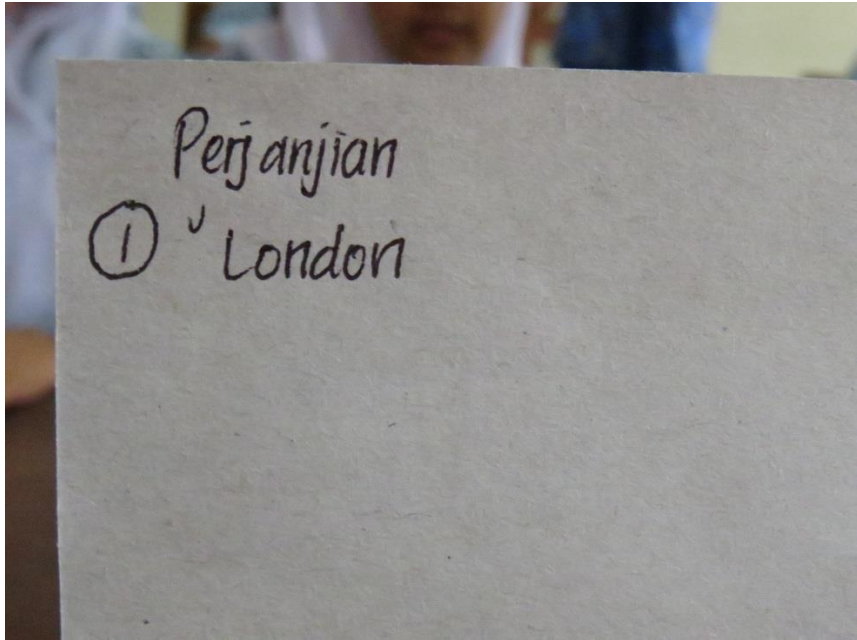 Perjanjian
① London